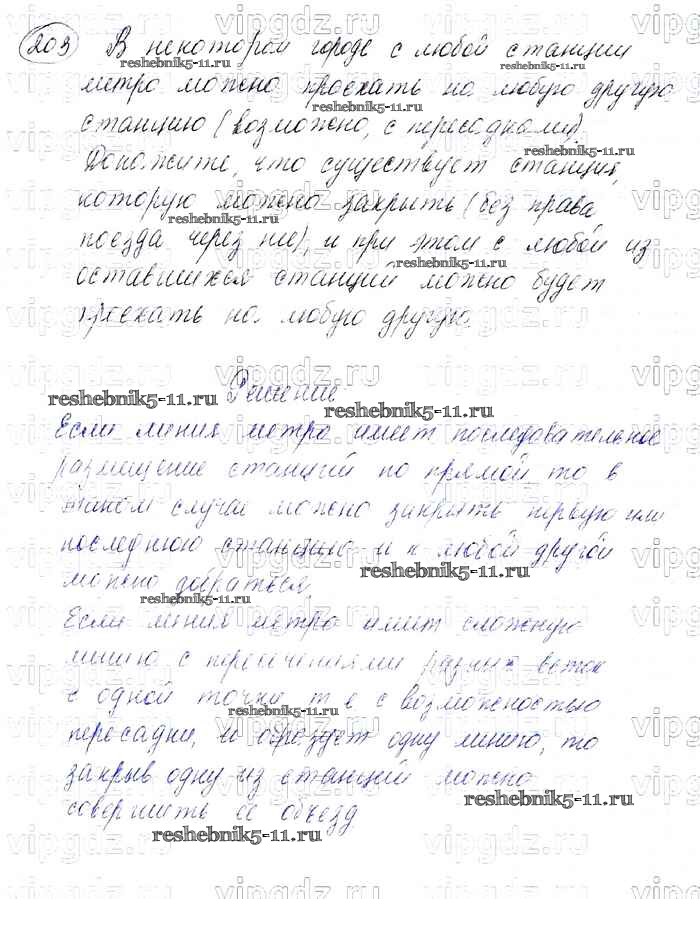 203 В некотором городе с любой станции
метро можно проехать на любую другую
станцию (возможно, с пересадками).
Докажите, что существует станция,
которую можно закрыть (без права
поезда через нее), и при этом с любой из
оставшихся станций можно будет
проехать на любую другую.
Решение
Если линия метро имеет последовательное
размещение станций по прямой то в
таком случае можно закрыть первую или
последнюю станцию и к любой другой
можно добраться.
Если линия метро имеет сложную
линию с пересечениями разных веток
с одной точки т е с возможностью
пересадки, и образует одну линию, то
закрыв одну из станций можно
совершить ее объезд
reshebnik5-11.ru
vipgdz.ru